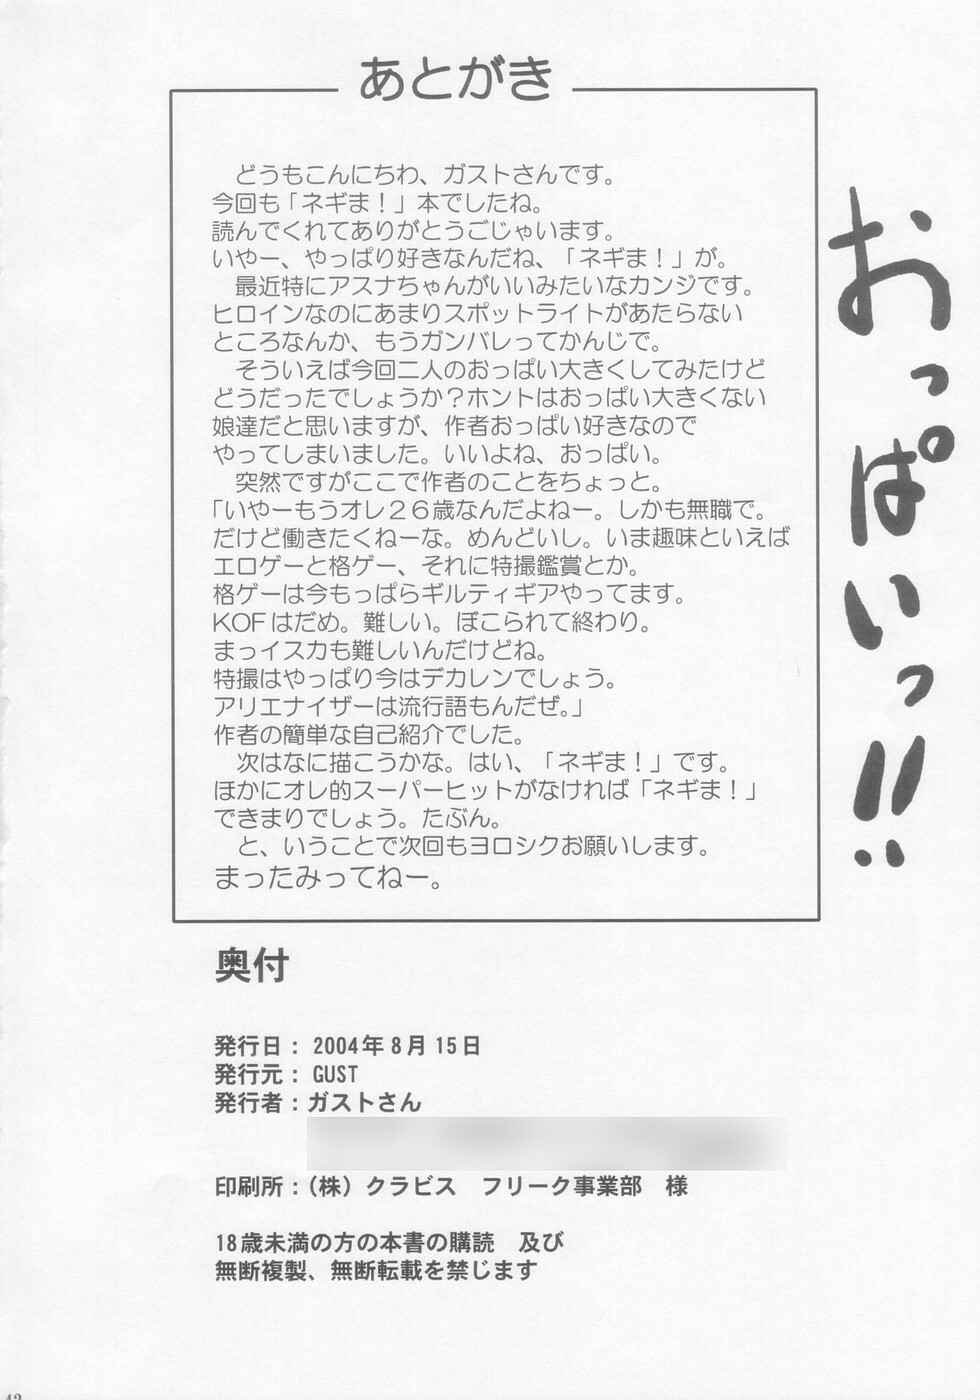 あとがき
どうもこんにちわ、ガストさんです。
今回も「ネギま！」本でしたね。
読んでくれてありがとうごじゃいます。
いやー、やっぱり好きなんだね、「ネギま！」が。
最近特にアスナちゃんがいいみたいなカンジです。
ヒロインなのにあまりスポットライトがあたらない
ところなんか、もうガンバレってかんじで。
そういえば今回二人のおっぱい大きくしてみたけど
どうだったでしょうか？ホントはおっぱい大きくない
娘達だと思いますが、作者おっぱい好きなので
やってしまいました。いいよね、おっぱい。
突然ですがここで作者のことをちょっと。
「いやーもうオレ２６歳なんだよねー。しかも無職で。
だけど働きたくねーな。めんどいし。いま趣味といえば
エロゲーと格ゲー、それに特撮鑑賞とか。
格ゲーは今もっぱらギルティギアやってます。
KOFはだめ。難しい。ぼこられて終わり。
まっイスカも難しいんだけどね。
特撮はやっぱり今はデカレンでしょう。
アリエナイザーは流行語もんだぜ。」
作者の簡単な自己紹介でした。
次はなに描こうかな。はい、「ネギま！」です。
ほかにオレ的スーパーヒットがなければ「ネギま！」
できまりでしょう。たぶん。
と、いうことで次回もヨロシクお願いします。
まったみってねー。
おっぱいっ!!
奥付
発行日： 2004年8月15日
発行元： GUST
発行者：ガストさん
印刷所：（株）クラビス　フリーク事業部　様
18歳未満の方の本書の購読　及び
無断複製、無断転載を禁じます